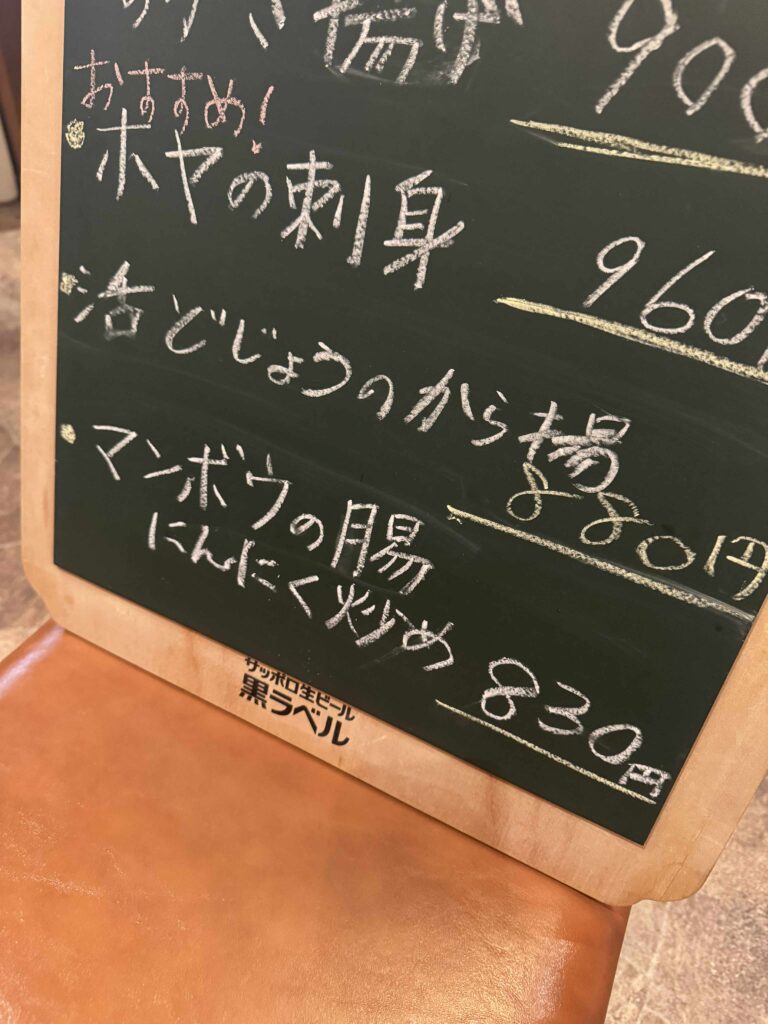 き揚げ 900
おすすめ!
・ホヤの刺身
960
・活どじょうのから揚
880円
・マンボウの腸
にんにく炒め
830円
サッポロ生ビール
黒ラベル